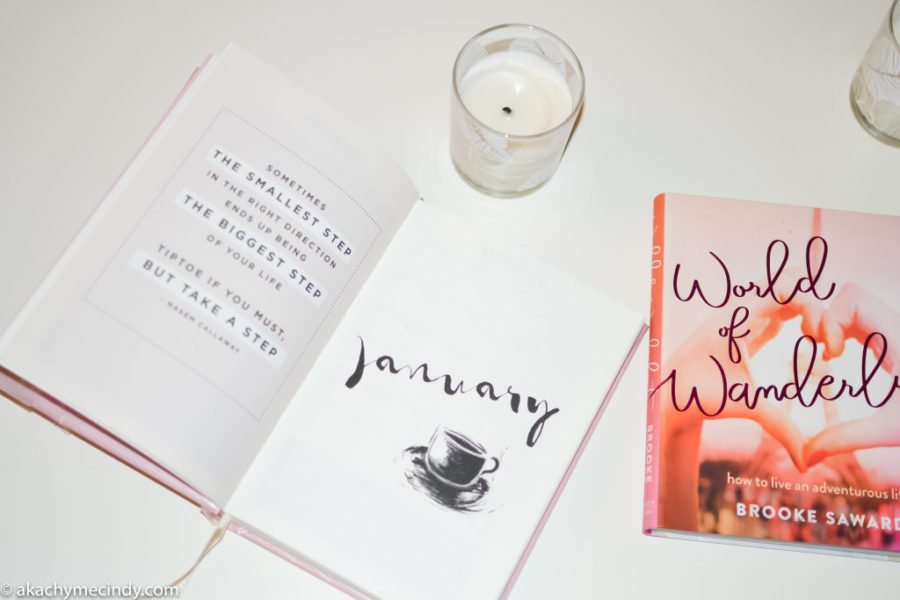 SOMETIMES
THE SMALLEST STEP
IN THE RIGHT DIRECTION
ENDS UP BEING
THE BIGGEST STEP
OF YOUR LIFE
TIPTOE IF YOU MUST,
BUT TAKE A STEP
- NAEEM CALLAWAY
january
World
of
Wanderl
how to live an adventurous li
BROOKE SAWARD
BROOKE
© akachymecindy.com